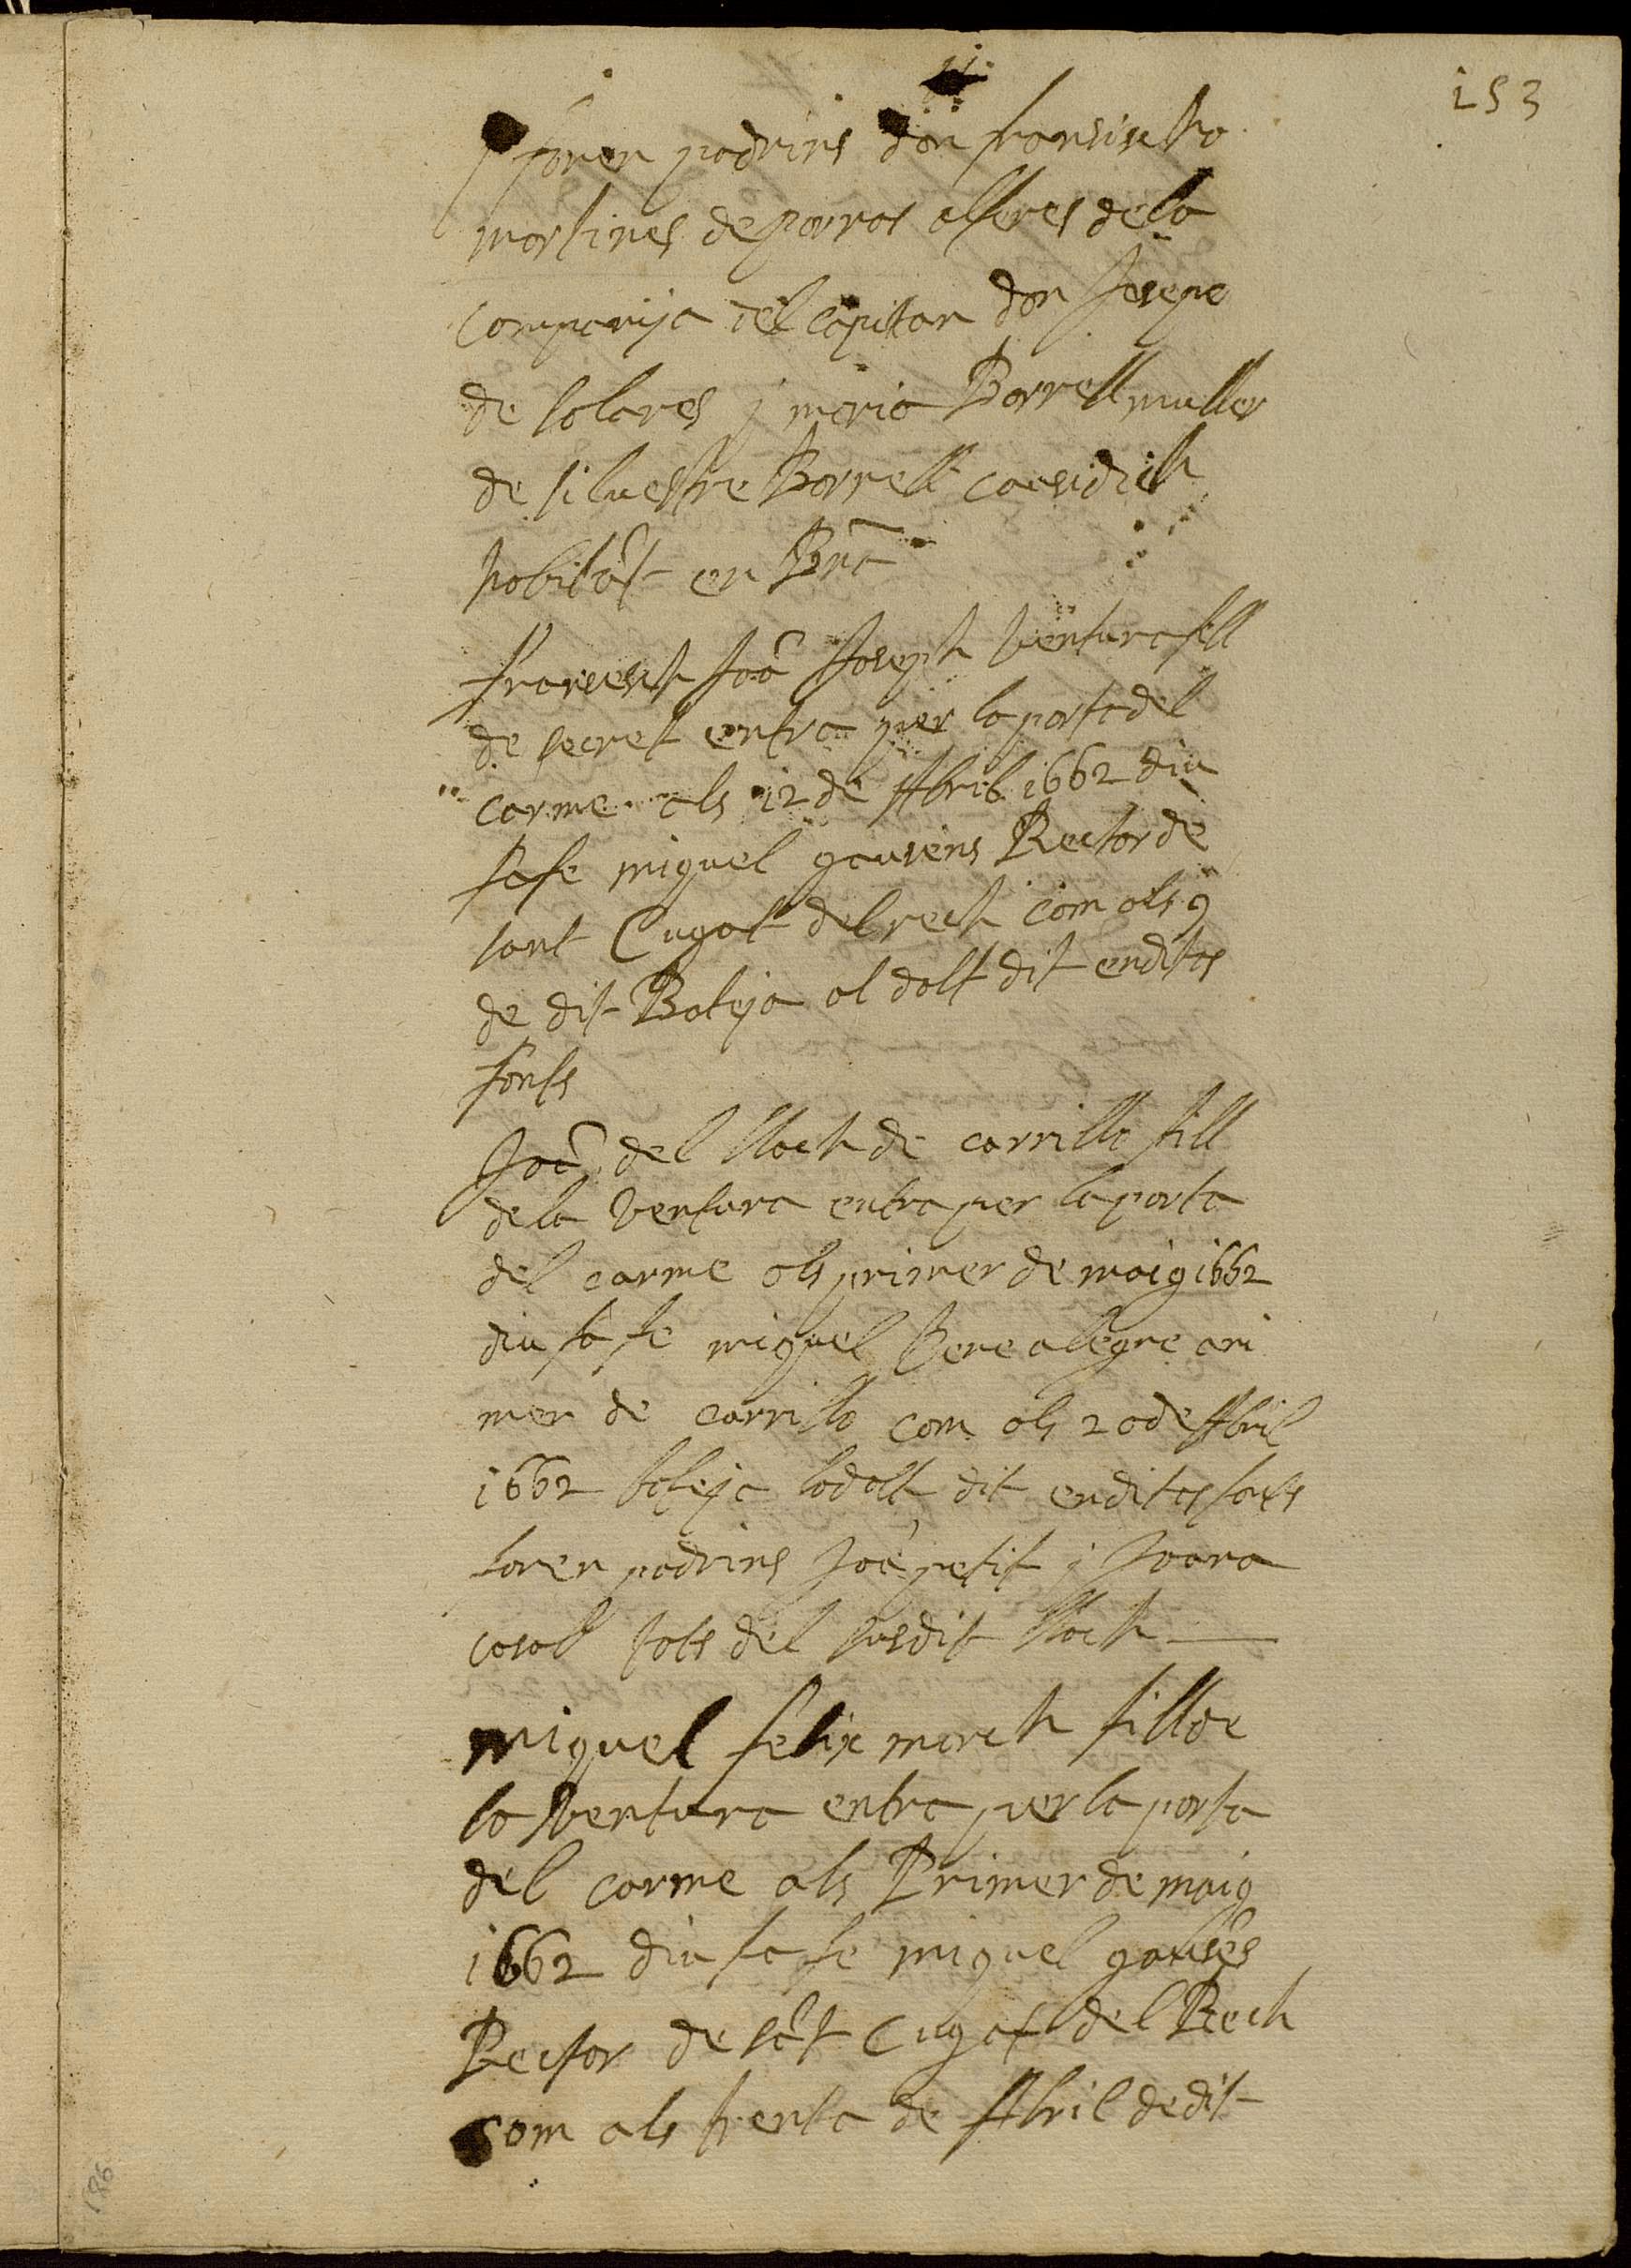 153
foren padrins don fransischo
martines de porras alferes de la
companÿa del capitan don Josepe
de solares j maria Borrell muller
de siluestre Borrell causidich
habitāt en Bñā
fransesch Joā Joseph Ventura fill
de secret entra per la porta del
carme als 12 de Abril 1662 diu
sa fe miquel gausens Rector de
sant Cugat del rech com als 9
de dit Bateja al dalt dit en ditas
fonts
Joā del lloch de carrilla fill
de la Ventura entra per la porta
del carme als primer de maig 1662
diu sa fe miquel Pere alegre
de carrilla com als 20 de Abril
1662 bateja lo dalt dit en ditas fōts
foren padrins Joā petit j Joana
casals tots del susdit lloch
miquel felix march fill de
la Ventura entra per la porta
del carme als Primer de maig
1662 diu sa fe miquel gausēs
Rector de sāt Cugat del Rech
com als trenta de Abril de dit
186